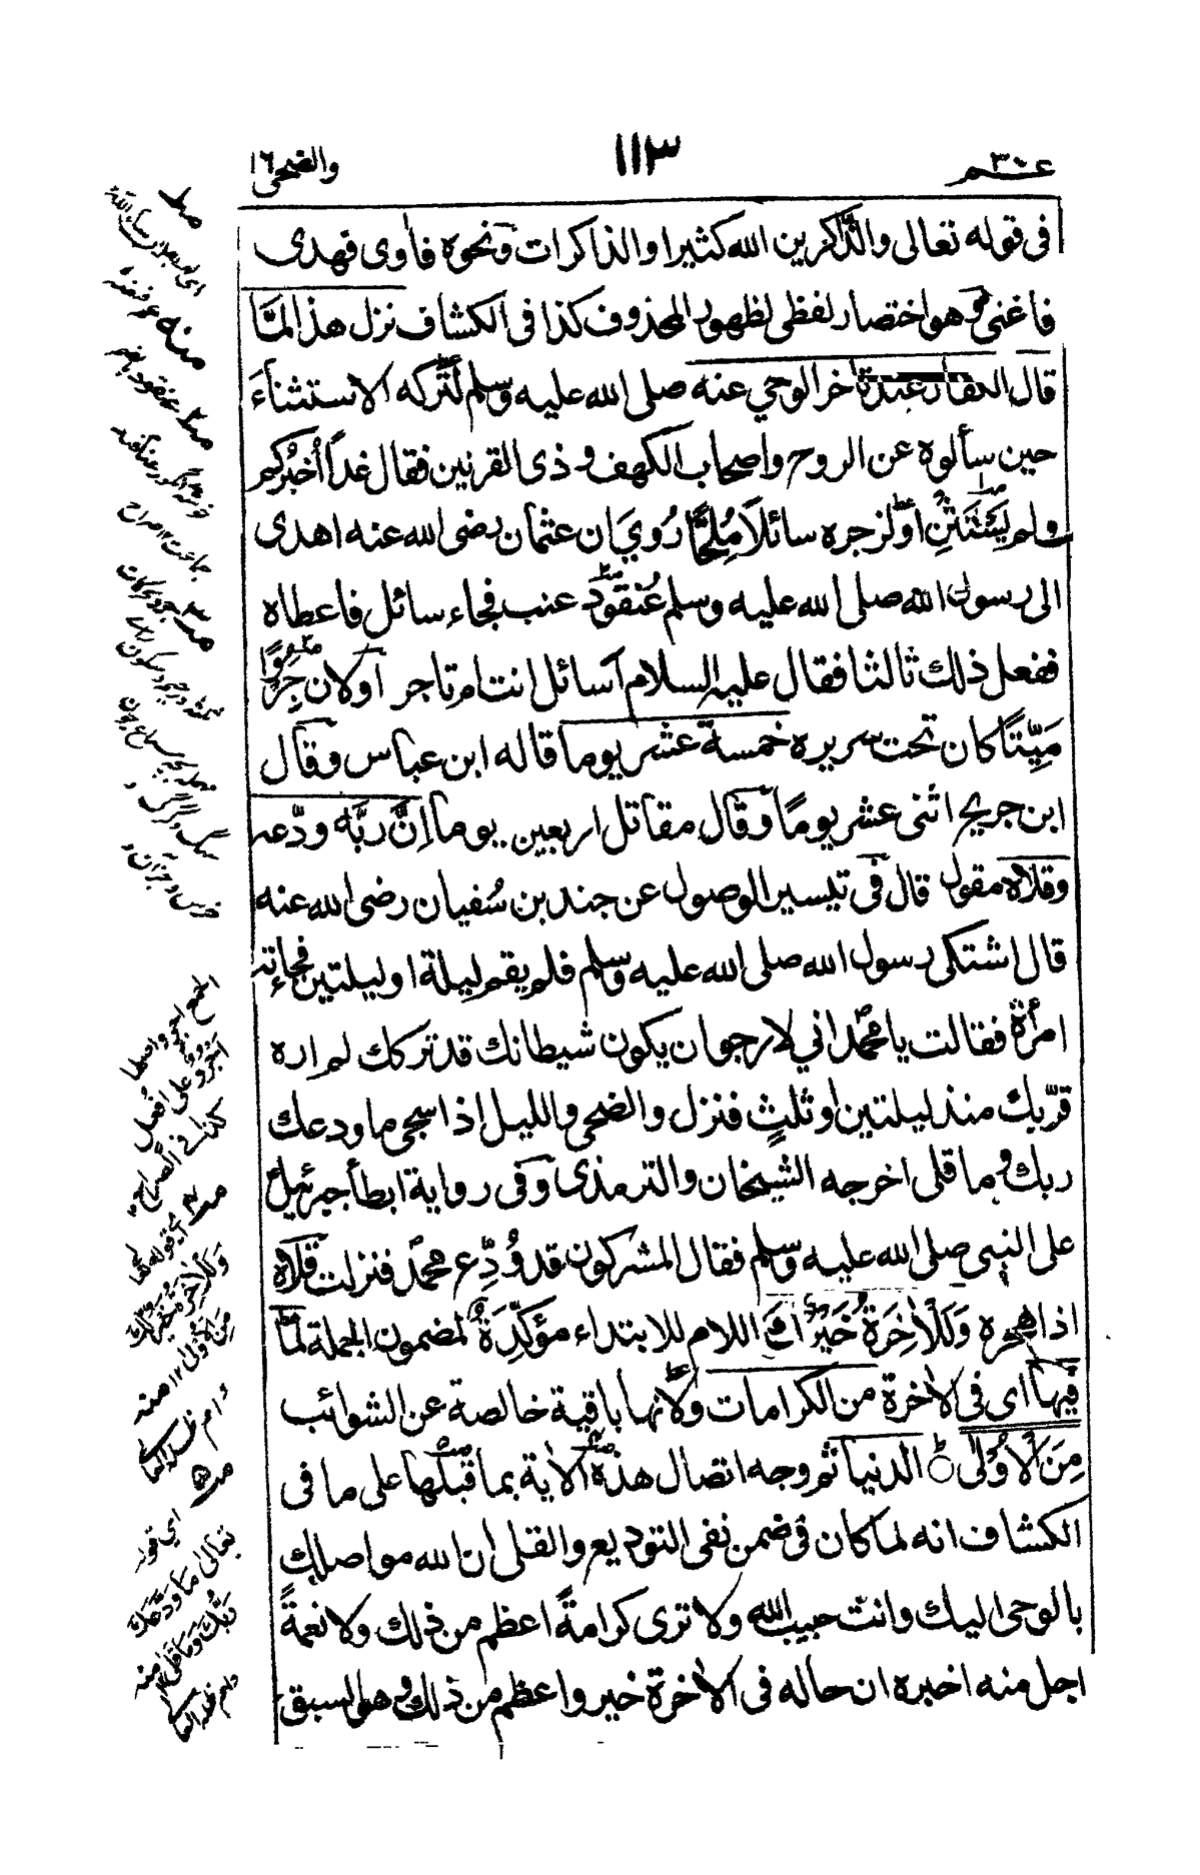 عم ٣٠
١١٣
والضحى ١٦
فى قوله تعالى والذّاكرين الله كثيرا والذاكرات ونحوه فأوى فهدى
فاغنى وهو اختصار لفظى لظهور المحذوف كذا فى الكشاف نزل هذا لمّا
قال الكفار عند تأخر الوحي عنه صلى الله عليه وسلم لتركه الاستثناءَ
حين سألوه عن الروح واصحاب الكهف وذى القرنين فقال غداً أُخبركم
ولم يَسْتَثْنِ اولزجره سائلاً مُلِحًّا رُوِيَ ان عثمان رضى الله عنه اهدى
الى رسول الله صلى الله عليه وسلم عُنقودَ عنب فجاء سائل فاعطاه
ففعل ذلك ثالثا فقال عليه السلام آسائل انت ام تاجر اولان جِرْوًا
مَيِّتًا كان تحت سريره خمسة عشر يوما قاله ابن عباس وقال
ابن جريج اثنى عشر يومًا وقال مقاتل اربعين يوما إنَّ ربَّه ودّعه
وقلاه مقول قال فى تيسير الوصول عن جندب بن سُفيان رضى الله عنه
قال اشتكى رسول الله صلى الله عليه وسلم فلم يقم ليلة او ليلتين فجاءته
امرأة فقالت يا محمد اني لارجو ان يكون شيطانك قد تركك لم اره
قرّبك منذ ليلتين او ثلثٍ فنزل والضحى والليل إذا سجى ما ودعك
ربك وما قلى اخرجه الشيخان والترمذى وفى رواية ابطأ جبرئيل
على النبى صلى الله عليه وسلم فقال المشركون قد وُدِّع محمد فنزلت قلاه
اذا هجره وَلَلْاٰخِرَةُ خَيْرٌ لَّكَ اللام للابتداء مؤكِّدَةٌ لمضمون الجملة لمّا
فيها اى فى الاٰخرة من الكرامات ولانها باقية خالصة عن الشوائب
مِنَ الْاُوْلٰى الدنيا ثم وجه اتصال هذه الاٰية بما قبلها على ما فى
الكشاف انه لما كان فى ضمن نفى التوديع والقلى ان الله مواصلك
بالوحى اليك وانت حبيب الله ولا ترى كرامةً اعظم من ذلك ولا نعمةً
اجل منه اخبره ان حاله فى الاٰخرة خير واعظم من ذلك وهو السبق
منه
الجمع اجرو واصلها
اجرو على افعل
كذا فى الصراح
اى قوله تعالى
وَلَلْاٰخِرَةُ خَيْرٌ لَّكَ
مِنَ الْاُوْلٰى ١٢ منه
اى قوله
تعالى مَا وَدَّعَكَ
رَبُّكَ وَمَا قَلٰى منه